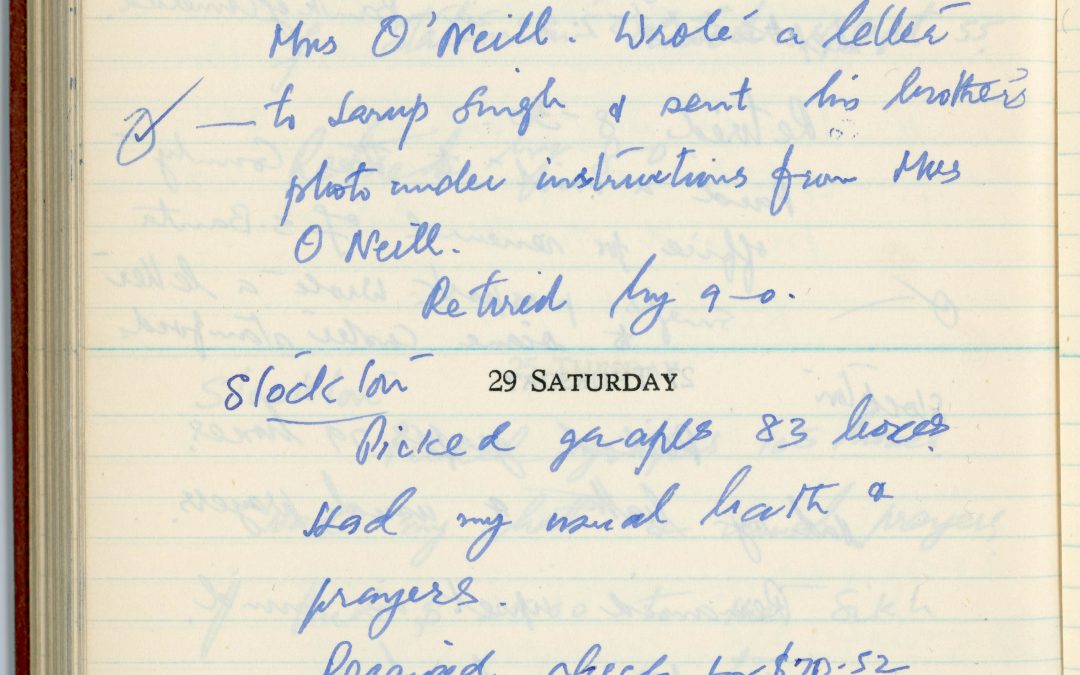 Mrs O'Neill. Wrote a letter
— to Sarup Singh & sent his brother's
photo under instructions from Mrs
O Neill.
Retired by 9-0.
Stockton
29 SATURDAY
Picked grapes 83 boxes
Had my usual bath &
prayers.
Received check for $70.52